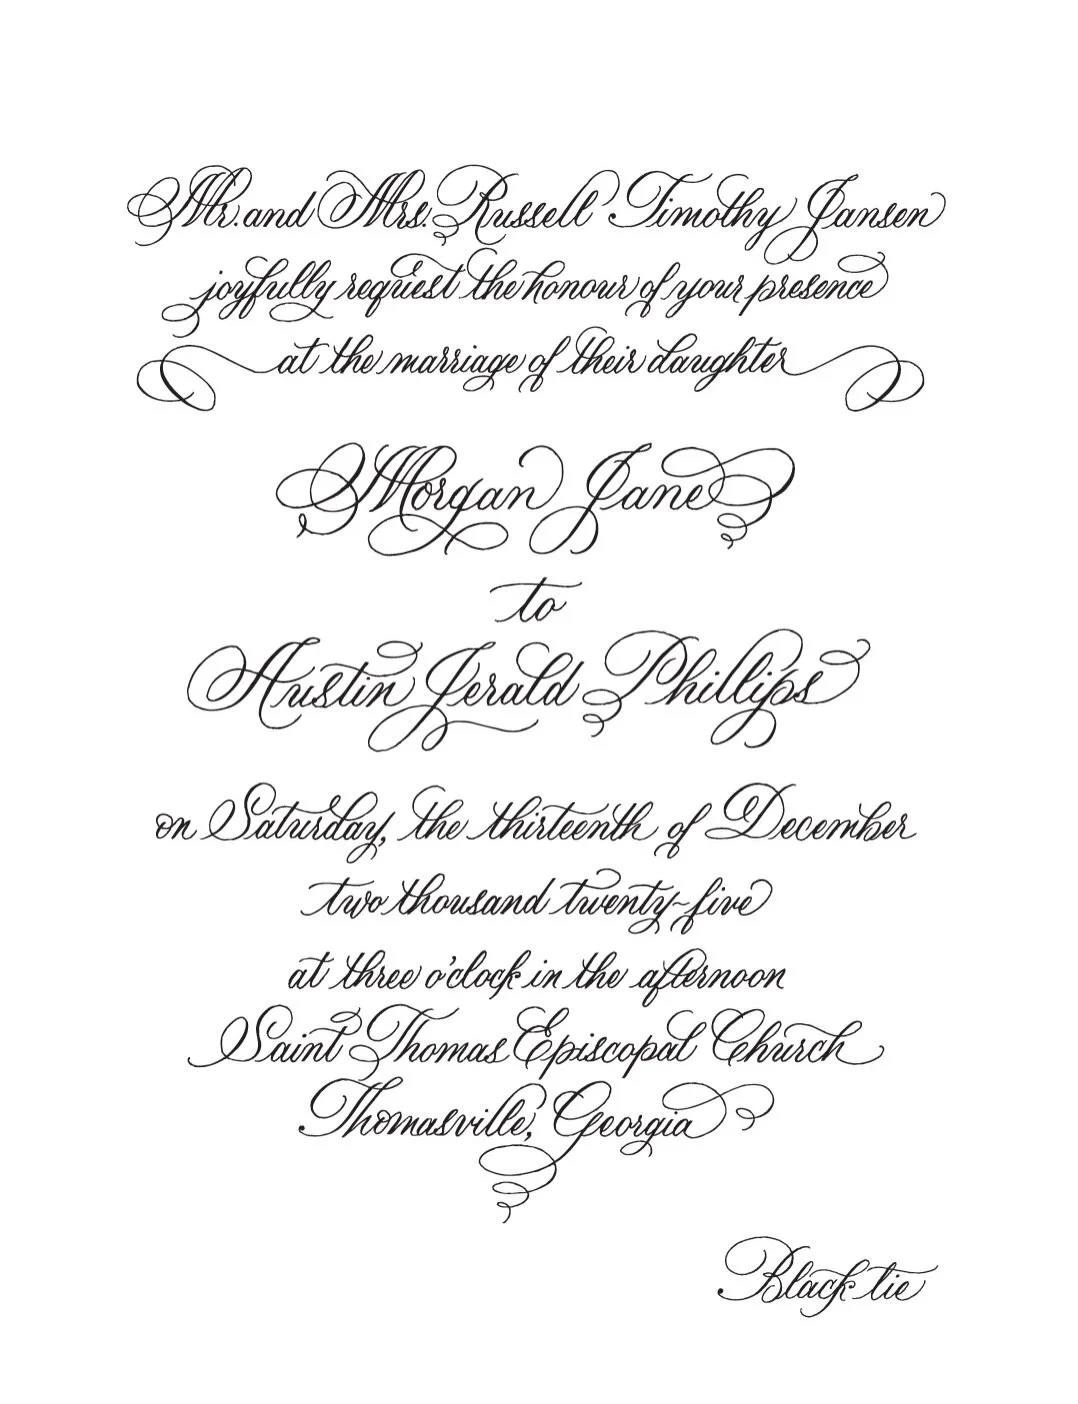 Mr. and Mrs. Russell Timothy Jansen
joyfully request the honour of your presence
at the marriage of their daughter
Morgan Jane
to
Austin Jerald Phillips
on Saturday, the thirteenth of December
two thousand twenty-five
at three o'clock in the afternoon
Saint Thomas Episcopal Church
Thomasville, Georgia
Black tie